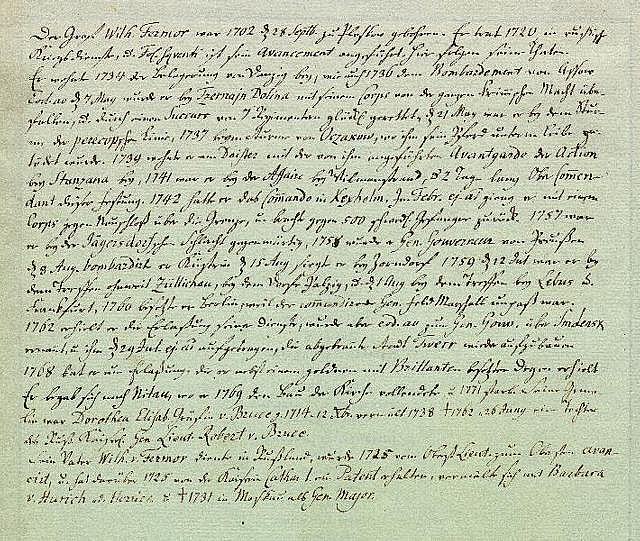 Der Graf Wilh. Fermor war 1702 d 28 Septb. zu Pleskow gebohren. Er trat 1720 in russische
Kriegsdienste, u. ist sein Avancement angeführt. Hier folgen seine Thaten.
Er wohnte 1734 der Belagerung von Danzig bey, wie auch 1736 dem Bombardement von Assow
eod. ao d 7 May wurde er bey Tzernaja Dolina mit seinem Corps von der ganzen Macht
überfallen, u. durch einen Succurs von 7 Regimentern glückl. gerettet, d 21 May war er bey dem
der perecopsche Linie, 1737 von Oczakow, wo ihm sein Pferd unterm Leibe
wurde. 1739 wohnte er am Dniester mit der von ihm angeführten Avantgarde der Action
bey Stanzana bey, 1741 war er bey der Affaire bey Wilmanstrand, u. 2 Tage lang Ober Comen-
dant dieser Festung. 1742 hatte er das Comando in Kexholm. Im Febr. ej. a. gieng er mit einem
Corps gegen Neuschloß über die Grenze, u. brachte gegen 500 Gefangene zurück. 1757 war
er bey der Jägersdorfschen Schlacht gegenwärtig, 1758 wurde er Gen. Gouverneur von Preußen
d 3 Aug. bombardirt er Küstrin d 15 Aug. siegt er bey Zorndorf 1759 d 12 Jul. war er bey
dem Treffen ohnweit Züllichau, bey dem Dorfe Palzig, u. d 1 Aug bey dem Treffen bey Lebus u.
Frankfurt, 1760 besetzte er Berlin, weil der comandirende Gen. Feld Marschall unpaß war.
1762 erhielt er die Erlassung seiner Dienste, wurde aber eod. ao zum Gen. Gouv. über Smolensk
ernannt, u. ihm d 29 Jul. ej. a. aufgetragen, die abgebrannte Stadt Twer wieder aufzubauen
1768 bat er um Erlaßung, die er nebst einem goldenen mit Brillanten besetzten Degen erhielt
Er begab sich nach Nitau, wo er 1769 den Bau der Kirche vollendete u. 1771 starb. Seine Gema-
lin war Dorothea Elisab. Gräfin v. Bruce g. 1714. 12 Xbr. vermält 1738 † 1762. 26 Aug eine Tochter
des Russ. Kaiserl. Gen Lieut. Robert v. Bruce.
Sein Vater Wilh. v. Fermor diente in Rußland, wurde 1725 vom Oberst Lieut. zum Obersten avan-
cirt, u. hat darüber 1725 von der Kaiserin Cathar. I. ein Patent erhalten, vermält sich mit Barbara
v. † 1731 in Moskau als Gen. Major.